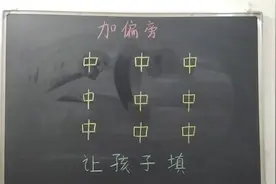 加偏旁
中 中 中
中 中 中
中 中 中
让孩子填